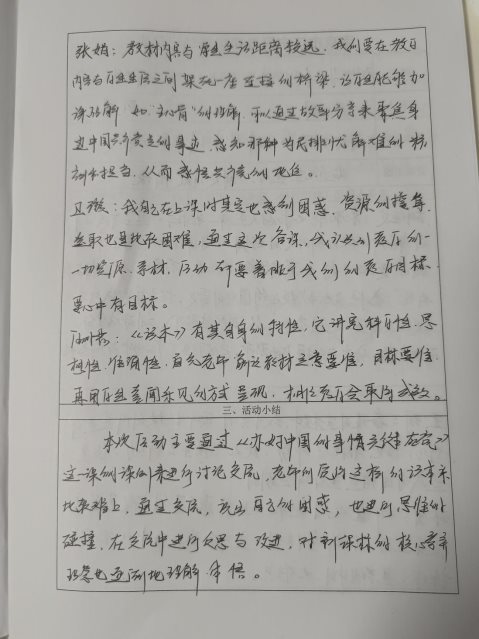 张娟：教材内容与学生生活距离较远，我们要在教材
内容与学生生活之间架起一座连接的桥梁，让学生能够加
深理解。如"主心骨"的理解，可以通过故事分享来聚焦身
边中国共产党员的事迹，感知那种为民排忧解难的
担当，从而感悟共产党的地位。
：我自己在上课时其实也感到困惑，资源的搜集、
选取也是比较困难，通过这次备课，我认识到教学的一
一切资源、素材、活动都要着眼于我们的教学目标，
要心中有目标。
：《读本》有其自身的特性，它讲究科学性、思
想性、准确性。首先老师解读教材立意要准，目标要准，
再用学生喜闻乐见的方式呈现，相信教学会取得成效。
三、活动小结
本次活动主要通过《办好中国的事情关键在党》
这一课的课例来进行讨论交流，老师们反映这样的读本课
比较难上，通过交流，说出自己的困惑，也进行思维的
碰撞，在交流中进行反思与改进，对新课标的核心素养
理念也逐渐地理解、体悟。